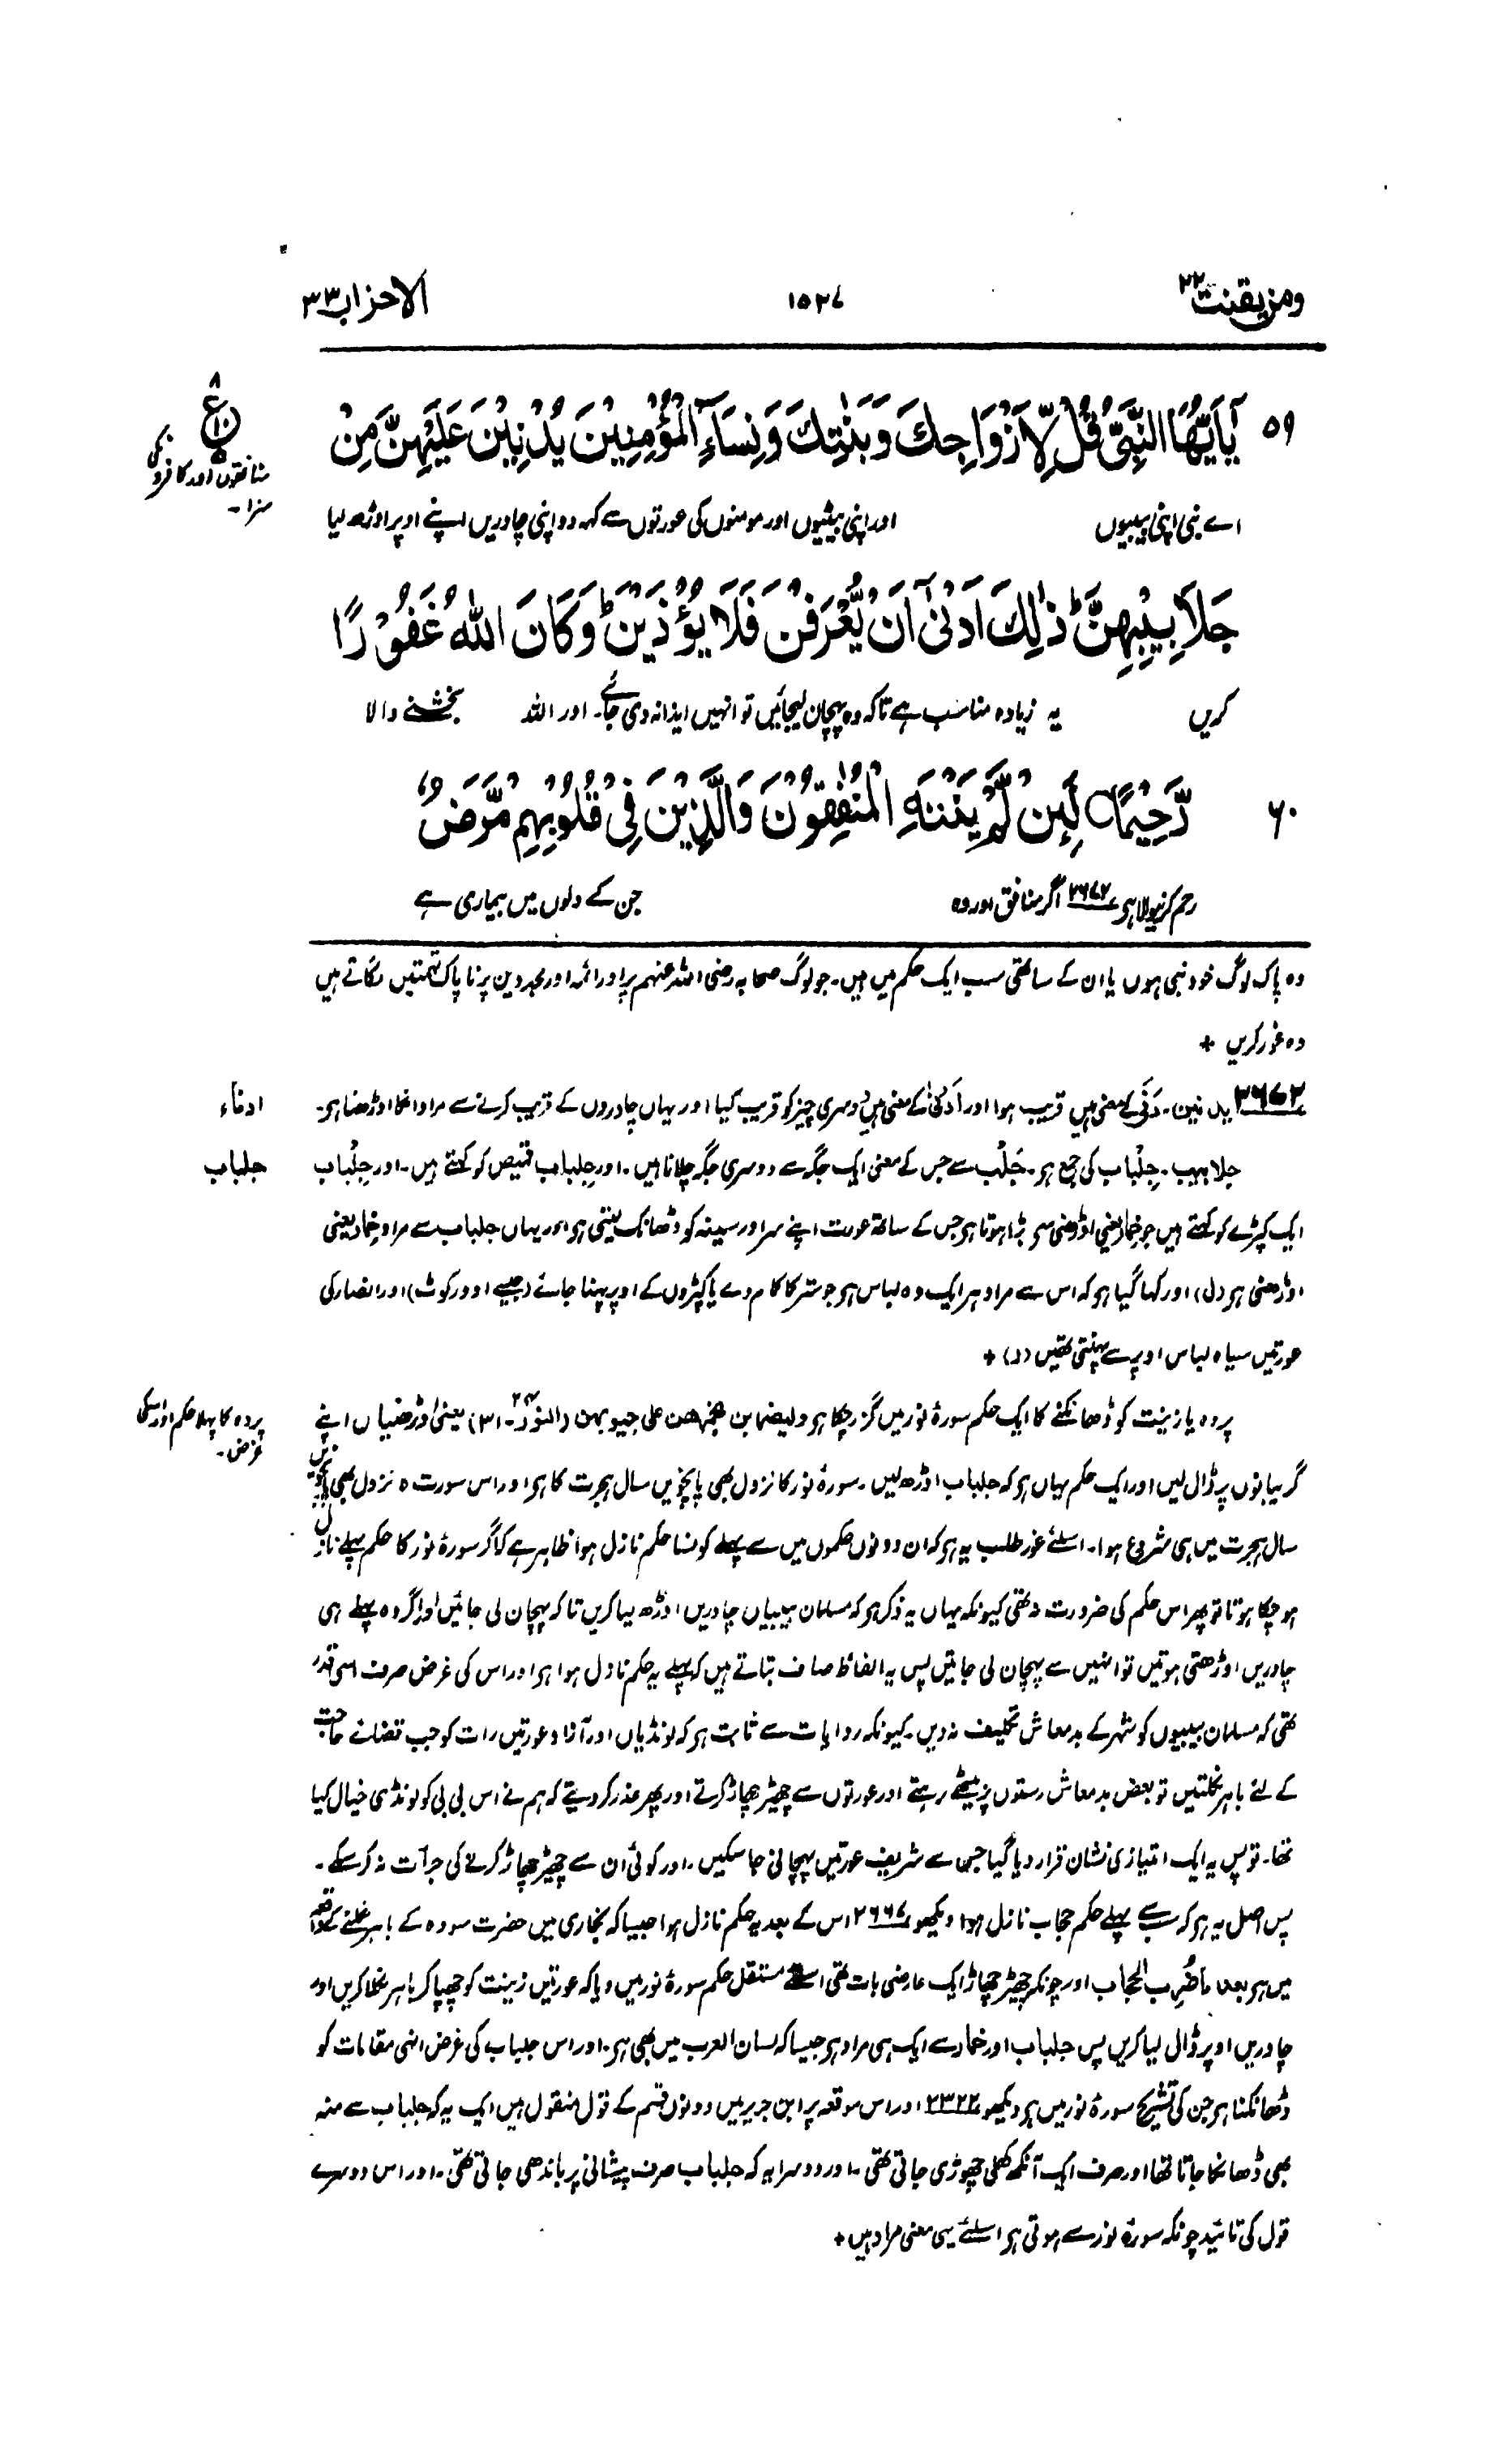 ومن یقنت ۲۲
۱۵۲۷
الاحزاب ۳۳
۸
ع
۱۰
۵
منافقوں اور کافروں کی
سزا۔
۵۹ یٰۤاَیُّهَا النَّبِیُّ قُلْ لِّاَزْوَاجِكَ وَبَنٰتِكَ وَنِسَآءِ الْمُؤْمِنِیْنَ یُدْنِیْنَ عَلَیْهِنَّ مِنْ
اے نبی اپنی بیبیوں اور اپنی بیٹیوں اور مومنوں کی عورتوں سے کہہ دو اپنی چادریں اپنے اوپر اوڑھ لیا
جَلَابِیْبِهِنَّ ؕ ذٰلِكَ اَدْنٰۤی اَنْ یُّعْرَفْنَ فَلَا یُؤْذَیْنَ ؕ وَكَانَ اللّٰهُ غَفُوْرًا
کریں یہ زیادہ مناسب ہے تاکہ وہ پہچان لیجائیں تو انہیں ایذا نہ دی جائے۔ اور اللہ بخشنے والا
۶۰ رَّحِیْمًا لَىِٕنْ لَّمْ یَنْتَهِ الْمُنٰفِقُوْنَ وَالَّذِیْنَ فِیْ قُلُوْبِهِمْ مَّرَضٌ
رحم کرنیوالا ہے ۲۶۷۲ اگر منافق اور وہ جن کے دلوں میں بیماری ہے
وہ پاک لوگ خود نبی ہوں یا ان کے ساتھی سب ایک حکم میں ہیں۔ جو لوگ صحابہ رضی اللہ عنہم پر اور ائمہ اور مجددین پر ناپاک تہمتیں لگاتے ہیں
وہ غور کریں +
ادناء
۲۶۷۲ یدنین۔ دَنٰی کے معنی ہیں قریب ہوا اور اَدْنٰی کے معنی ہیں دوسری چیز کو قریب کیا اور یہاں چادروں کے قریب کرنے سے مراد انکا اوڑھنا ہے۔
جلباب
جلابیب۔ جِلْباب کی جمع ہے۔ جَلْب سے جس کے معنی ایک جگہ سے دوسری جگہ چلانا ہیں۔ اور جِلباب قمیص کو کہتے ہیں۔ اور جِلْباب
ایک کپڑے کو کہتے ہیں جو خمار یعنی اوڑھنی سے بڑا ہوتا ہے جس کے ساتھ عورت اپنے سر اور سینہ کو ڈھانک لیتی ہے اور یہاں جلباب سے مراد خمار یعنی
اوڑھنی ہے (ل) اور کہا گیا ہے کہ اس سے مراد ہر ایک وہ لباس ہے جو ستر کا کام دے یا کپڑوں کے اوپر پہنا جائے (جیسے اوورکوٹ) اور انصار کی
عورتیں سیاہ لباس اوپر سے پہنتی تھیں (ل) +
پردہ کا پہلا حکم اور اسکی
غرض۔
پردہ یا زینت کو ڈھانکنے کا ایک حکم سورۂ نور میں گزر چکا ہے ولیضربن بخمرهن علی جیوبهن (النور ۲۴۔۳۱) یعنی اوڑھنیاں اپنے
گریبانوں پر ڈال لیں اور ایک حکم یہاں ہے کہ جلباب اوڑھ لیں۔ سورۂ نور کا نزول بھی پانچویں سال ہجرت کا ہے اور اس سورت کا نزول بھی پانچویں
سال ہجرت میں ہی شروع ہوا۔ اسلئے غور طلب یہ ہے کہ ان دونوں حکموں میں سے پہلے کونسا حکم نازل ہوا ظاہر ہے کہ اگر سورۂ نور کا حکم پہلے نازل
ہو چکا ہوتا تو پھر اس حکم کی ضرورت نہ تھی کیونکہ یہاں یہ ذکر ہے کہ مسلمان بیبیاں چادریں اوڑھ لیا کریں تاکہ پہچان لی جائیں اور اگر وہ پہلے ہی
چادریں اوڑھتی ہوتیں تو انہیں سے پہچان لی جاتیں پس یہ الفاظ صاف بتاتے ہیں کہ پہلے یہ حکم نازل ہوا ہے اور اس کی غرض صرف اسی قدر
تھی کہ مسلمان بیبیوں کو شہر کے بدمعاش تکلیف نہ دیں۔ کیونکہ روایات سے ثابت ہے کہ لونڈیاں اور آزاد عورتیں رات کو جب قضائے حاجت
کے لئے باہر نکلتیں تو بعض بدمعاش رستوں پر بیٹھے رہتے اور عورتوں سے چھیڑ چھاڑ کرتے اور پھر عذر کر دیتے کہ ہم نے اس بی بی کو لونڈی خیال کیا
تھا۔ تو پس یہ ایک امتیازی نشان قرار دیا گیا جس سے شریف عورتیں پہچانی جا سکیں۔ اور کوئی ان سے چھیڑ چھاڑ کرنے کی جرأت نہ کر سکے۔
پس اصل یہ ہے کہ سب سے پہلے حکم حجاب نازل ہوا دیکھو ۲۶۶۷ اس کے بعد یہ حکم نازل ہوا جیسا کہ بخاری میں حضرت سودہ کے باہر نکلنے کے واقعہ
میں ہے بعد ما ضُرِب الحجاب اور چونکہ چھیڑ چھاڑ ایک عارضی بات تھی اسلئے مستقل حکم سورۂ نور میں دیا کہ عورتیں زینت کو چھپا کر باہر نکلا کریں اور
چادریں اوپر ڈال لیا کریں پس جلباب اور خمار سے ایک ہی مراد ہے جیسا کہ لسان العرب میں بھی ہے۔ اور اس جلباب کی غرض انہی مقامات کو
ڈھانکنا ہے جن کی تشریح سورۂ نور میں ہے دیکھو ۲۳۲۲ اور اس موقعہ پر ابن جریر میں دونوں قسم کے قول منقول ہیں ایک یہ کہ جلباب سے منہ
بھی ڈھانکا جاتا تھا اور صرف ایک آنکھ کھلی چھوڑی جاتی تھی۔ اور دوسرا یہ کہ جلباب صرف پیشانی پر باندھی جاتی تھی۔ اور اس دوسرے
قول کی تائید چونکہ سورۂ نور سے ہوتی ہے اسلئے یہی معنی مراد ہیں +